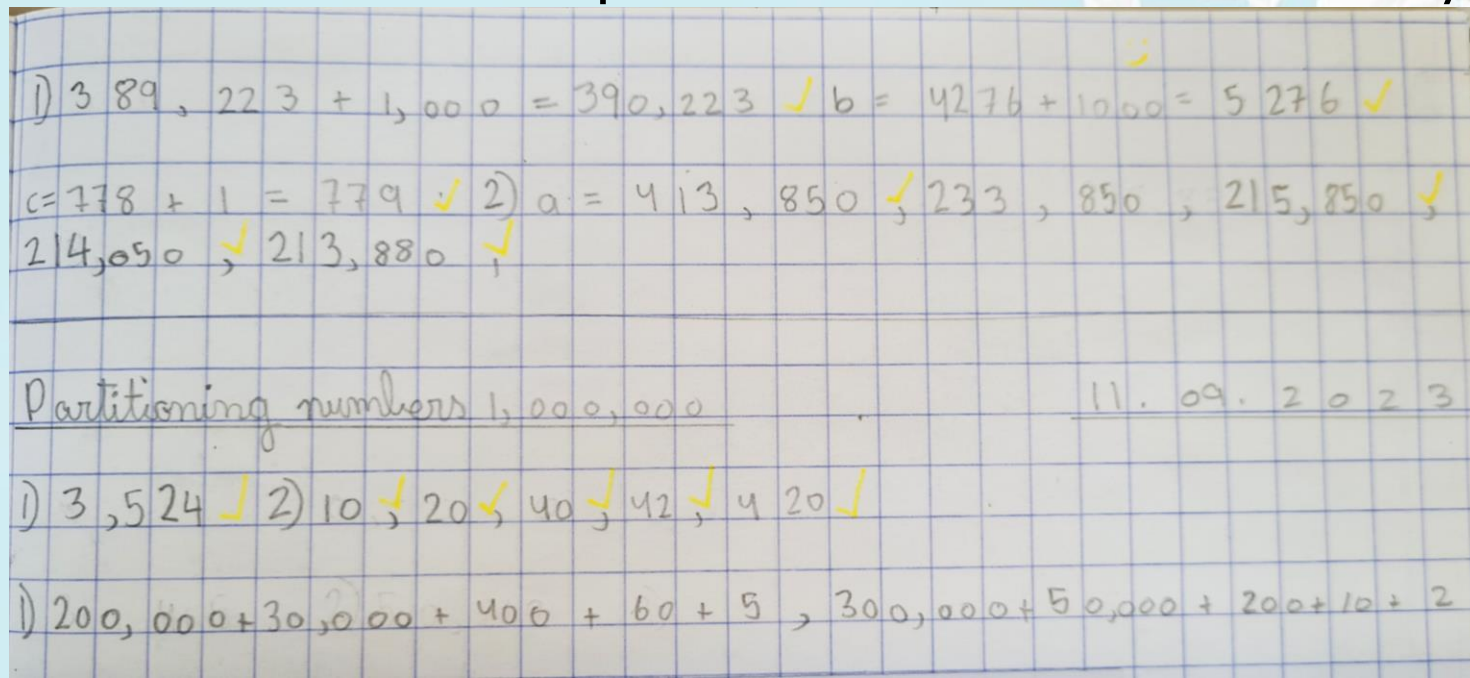 1) 389,223 + 1,000 = 390,223 ✓ b = 4276 + 1000 = 5276 ✓
c = 778 + 1 = 779 ✓ 2) a = 413,850 ✓, 233,850, 215,850 ✓,
214,050 ✓, 213,880 ✓,
Partitioning numbers 1,000,000 11.09.2023
1) 3,524 ✓ 2) 10 ✓, 20 ✓, 40 ✓, 42 ✓, 420 ✓
1) 200,000 + 30,000 + 400 + 60 + 5, 300,000 + 50,000 + 200 + 10 + 2